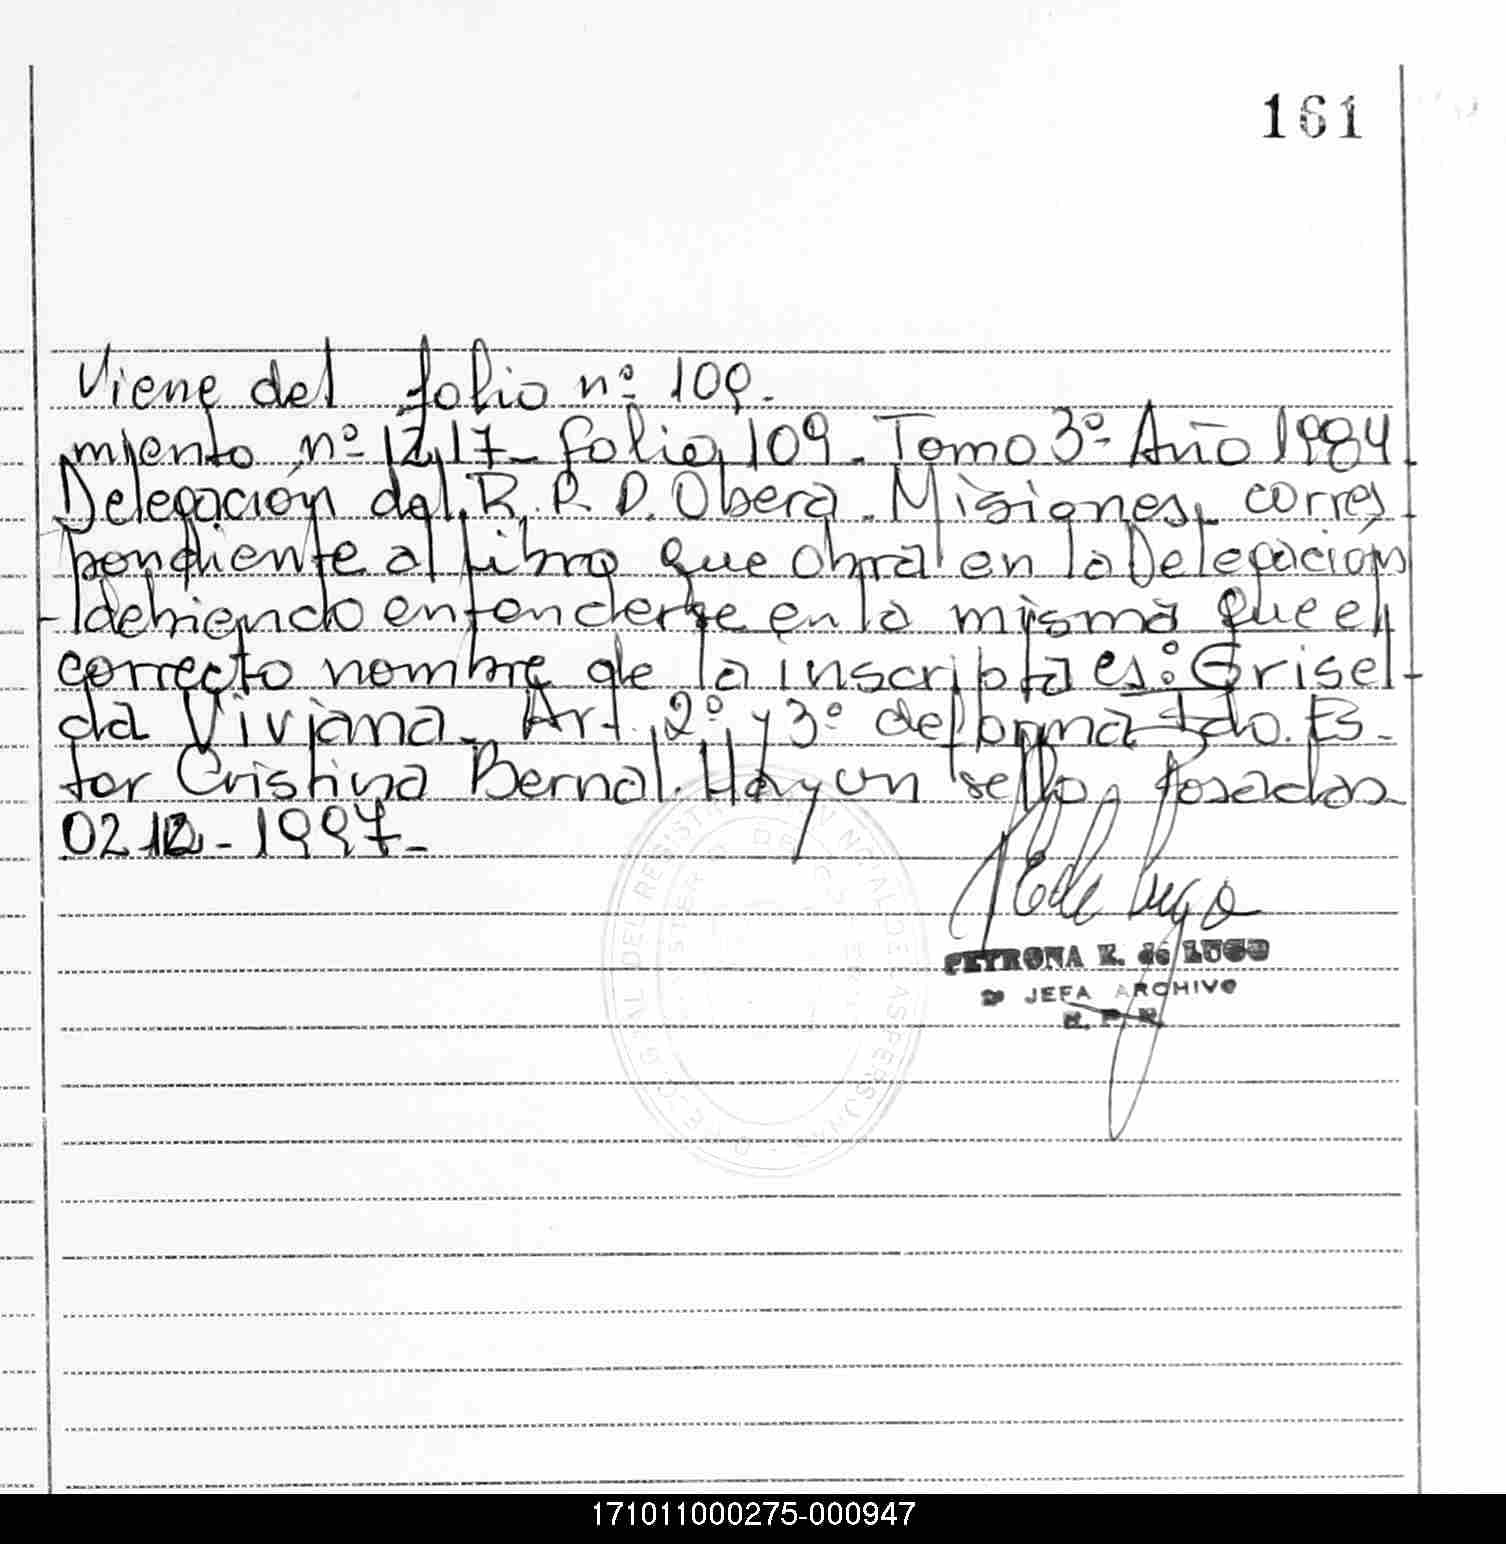 161
Viene del folio nº 109.
miento nº 1217 - folio 109 - Tomo 3º - Año 1984
Delegación del R. P. D. Obera - Misiones, corres
pondiente al libro que obra en la Delegación
debiendo entenderse en la misma que el
correcto nombre de la inscripta es: Grisel-
da Viviana. Art. 2º y 3º de forma Fdo. Es-
ter Cristina Bernal. Hay un sello, Posadas
02 12 - 1997 -
PETRONA E. de LUGO
JEFA ARCHIVO
R. P. P.
171011000275-000947